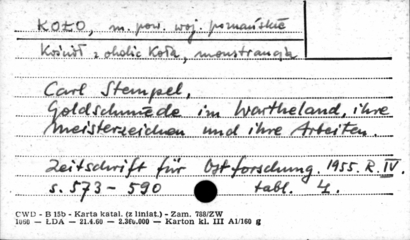 KOŁO, m. pow. woj. poznańskie
Kościół z okolic Koła, monstrancja
Carl Stempel,
Goldschmiede im Wartheland, ihre
Meisterzeichen und ihre Arbeiten.
Zeitschrift für Ostforschung. 1955. R. IV.
s. 573 - 590 tabl. 4.
CWD - B 15b - Karta katal. (z liniat.) - Zam. 788/ZW
1066 — ŁDA — 21.4.60 — 2.350.000 — Karton kl. III A1/160 g